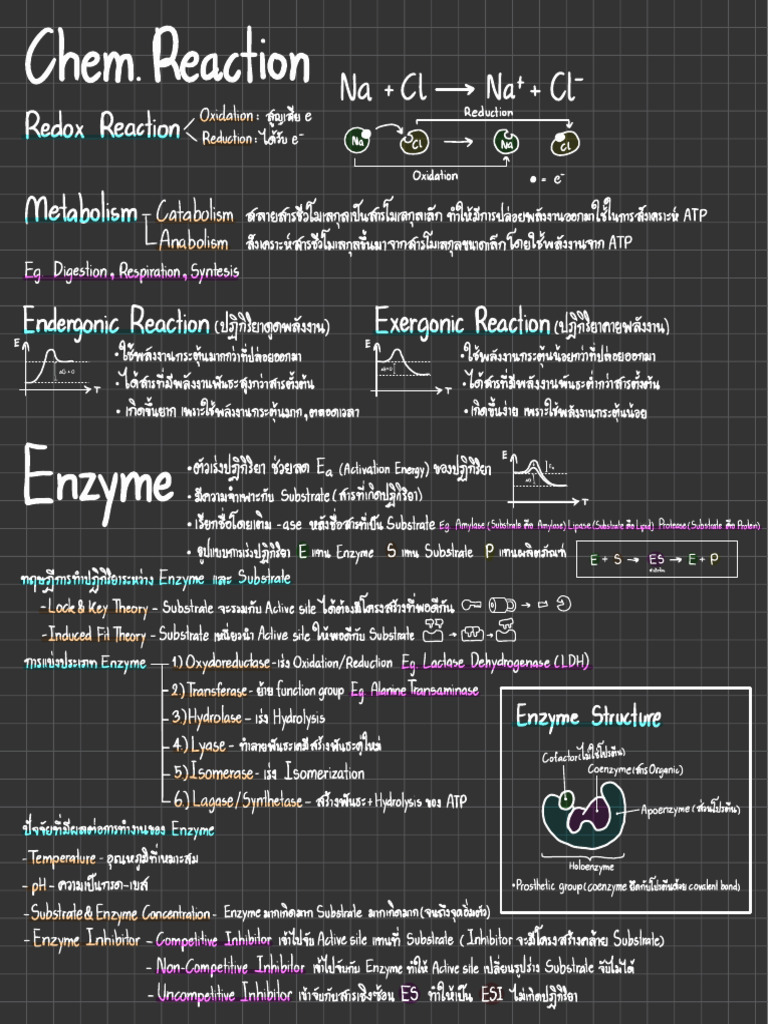 Chem. Reaction
Na + Cl → Na⁺ + Cl⁻
Redox Reaction
Oxidation : สูญเสีย e
Reduction : ได้รับ e⁻
Reduction
Na Cl → Na Cl
Oxidation
• = e⁻
Metabolism
Catabolism สลายสารชีวโมเลกุลเป็นสารโมเลกุลเล็ก ทำให้มีการปล่อยพลังงานออกมาใช้ในการสังเคราะห์ ATP
Anabolism สังเคราะห์สารชีวโมเลกุลขึ้นมาจากสารโมเลกุลขนาดเล็กโดยใช้พลังงานจาก ATP
Eg. Digestion, Respiration, Syntesis
Endergonic Reaction (ปฏิกิริยาดูดพลังงาน)
E
T
• ใช้พลังงานกระตุ้นมากกว่าที่ปล่อยออกมา
• ได้สารที่มีพลังงานพันธะสูงกว่าสารตั้งต้น
• เกิดขึ้นยาก เพราะใช้พลังงานกระตุ้นมาก, ตลอดเวลา
Exergonic Reaction (ปฏิกิริยาคายพลังงาน)
E
T
• ใช้พลังงานกระตุ้นน้อยกว่าที่ปล่อยออกมา
• ได้สารที่มีพลังงานพันธะต่ำกว่าสารตั้งต้น
• เกิดขึ้นง่าย เพราะใช้พลังงานกระตุ้นน้อย
Enzyme
• ตัวเร่งปฏิกิริยา ช่วยลด Ea (Activation Energy) ของปฏิกิริยา
E
T
• มีความจำเพาะกับ Substrate (สารที่เกิดปฏิกิริยา)
• เรียกชื่อโดยเติม -ase หลังชื่อสารที่เป็น Substrate Eg. Amylase (Substrate คือ Amylase) Lipase (Substrate คือ Lipid) Protease (Substrate คือ Protein)
• รูปแบบการเร่งปฏิกิริยา E แทน Enzyme S แทน Substrate P แทนผลิตภัณฑ์
E + S → ES → E + P
ทฤษฎีการทำปฏิกิริยาระหว่าง Enzyme และ Substrate
- Lock & Key Theory - Substrate จะรวมกับ Active site ได้ต้องมีโครงสร้างที่พอดีกัน
- Induced Fit Theory - Substrate เหนี่ยวนำ Active site ให้พอดีกับ Substrate
การแบ่งประเภท Enzyme
1.) Oxydoreductase - เร่ง Oxidation/Reduction Eg. Lactase Dehydrogenase (LDH)
2.) Transferase - ย้าย function group Eg. Alanine Transaminase
3.) Hydrolase - เร่ง Hydrolysis
4.) Lyase - ทำลายพันธะเคมีสร้างพันธะคู่ใหม่
5.) Isomerase - เร่ง Isomerization
6.) Lagase/Synthetase - สร้างพันธะ + Hydrolysis ของ ATP
Enzyme Structure
Cofactor (ไม่ใช่โปรตีน)
Coenzyme (สาร Organic)
Apoenzyme (ส่วนโปรตีน)
Holoenzyme
• Prosthetic group (coenzyme ยึดกับโปรตีนด้วย covalent bond)
ปัจจัยที่มีผลต่อการทำงานของ Enzyme
- Temperature - อุณหภูมิที่เหมาะสม
- pH - ความเป็นกรด-เบส
- Substrate & Enzyme Concentration - Enzyme มากเกิดมาก Substrate มากเกิดมาก (จนถึงจุดอิ่มตัว)
- Enzyme Inhibitor
- Competitive Inhibitor เข้าไปจับ Active site แทนที่ Substrate (Inhibitor จะมีโครงสร้างคล้าย Substrate)
- Non-Competitive Inhibitor เข้าไปจับกับ Enzyme ทำให้ Active site เปลี่ยนรูปร่าง Substrate จับไม่ได้
- Uncompetitive Inhibitor เข้าจับกับสารเชิงซ้อน ES ทำให้เป็น ESI ไม่เกิดปฏิกิริยา